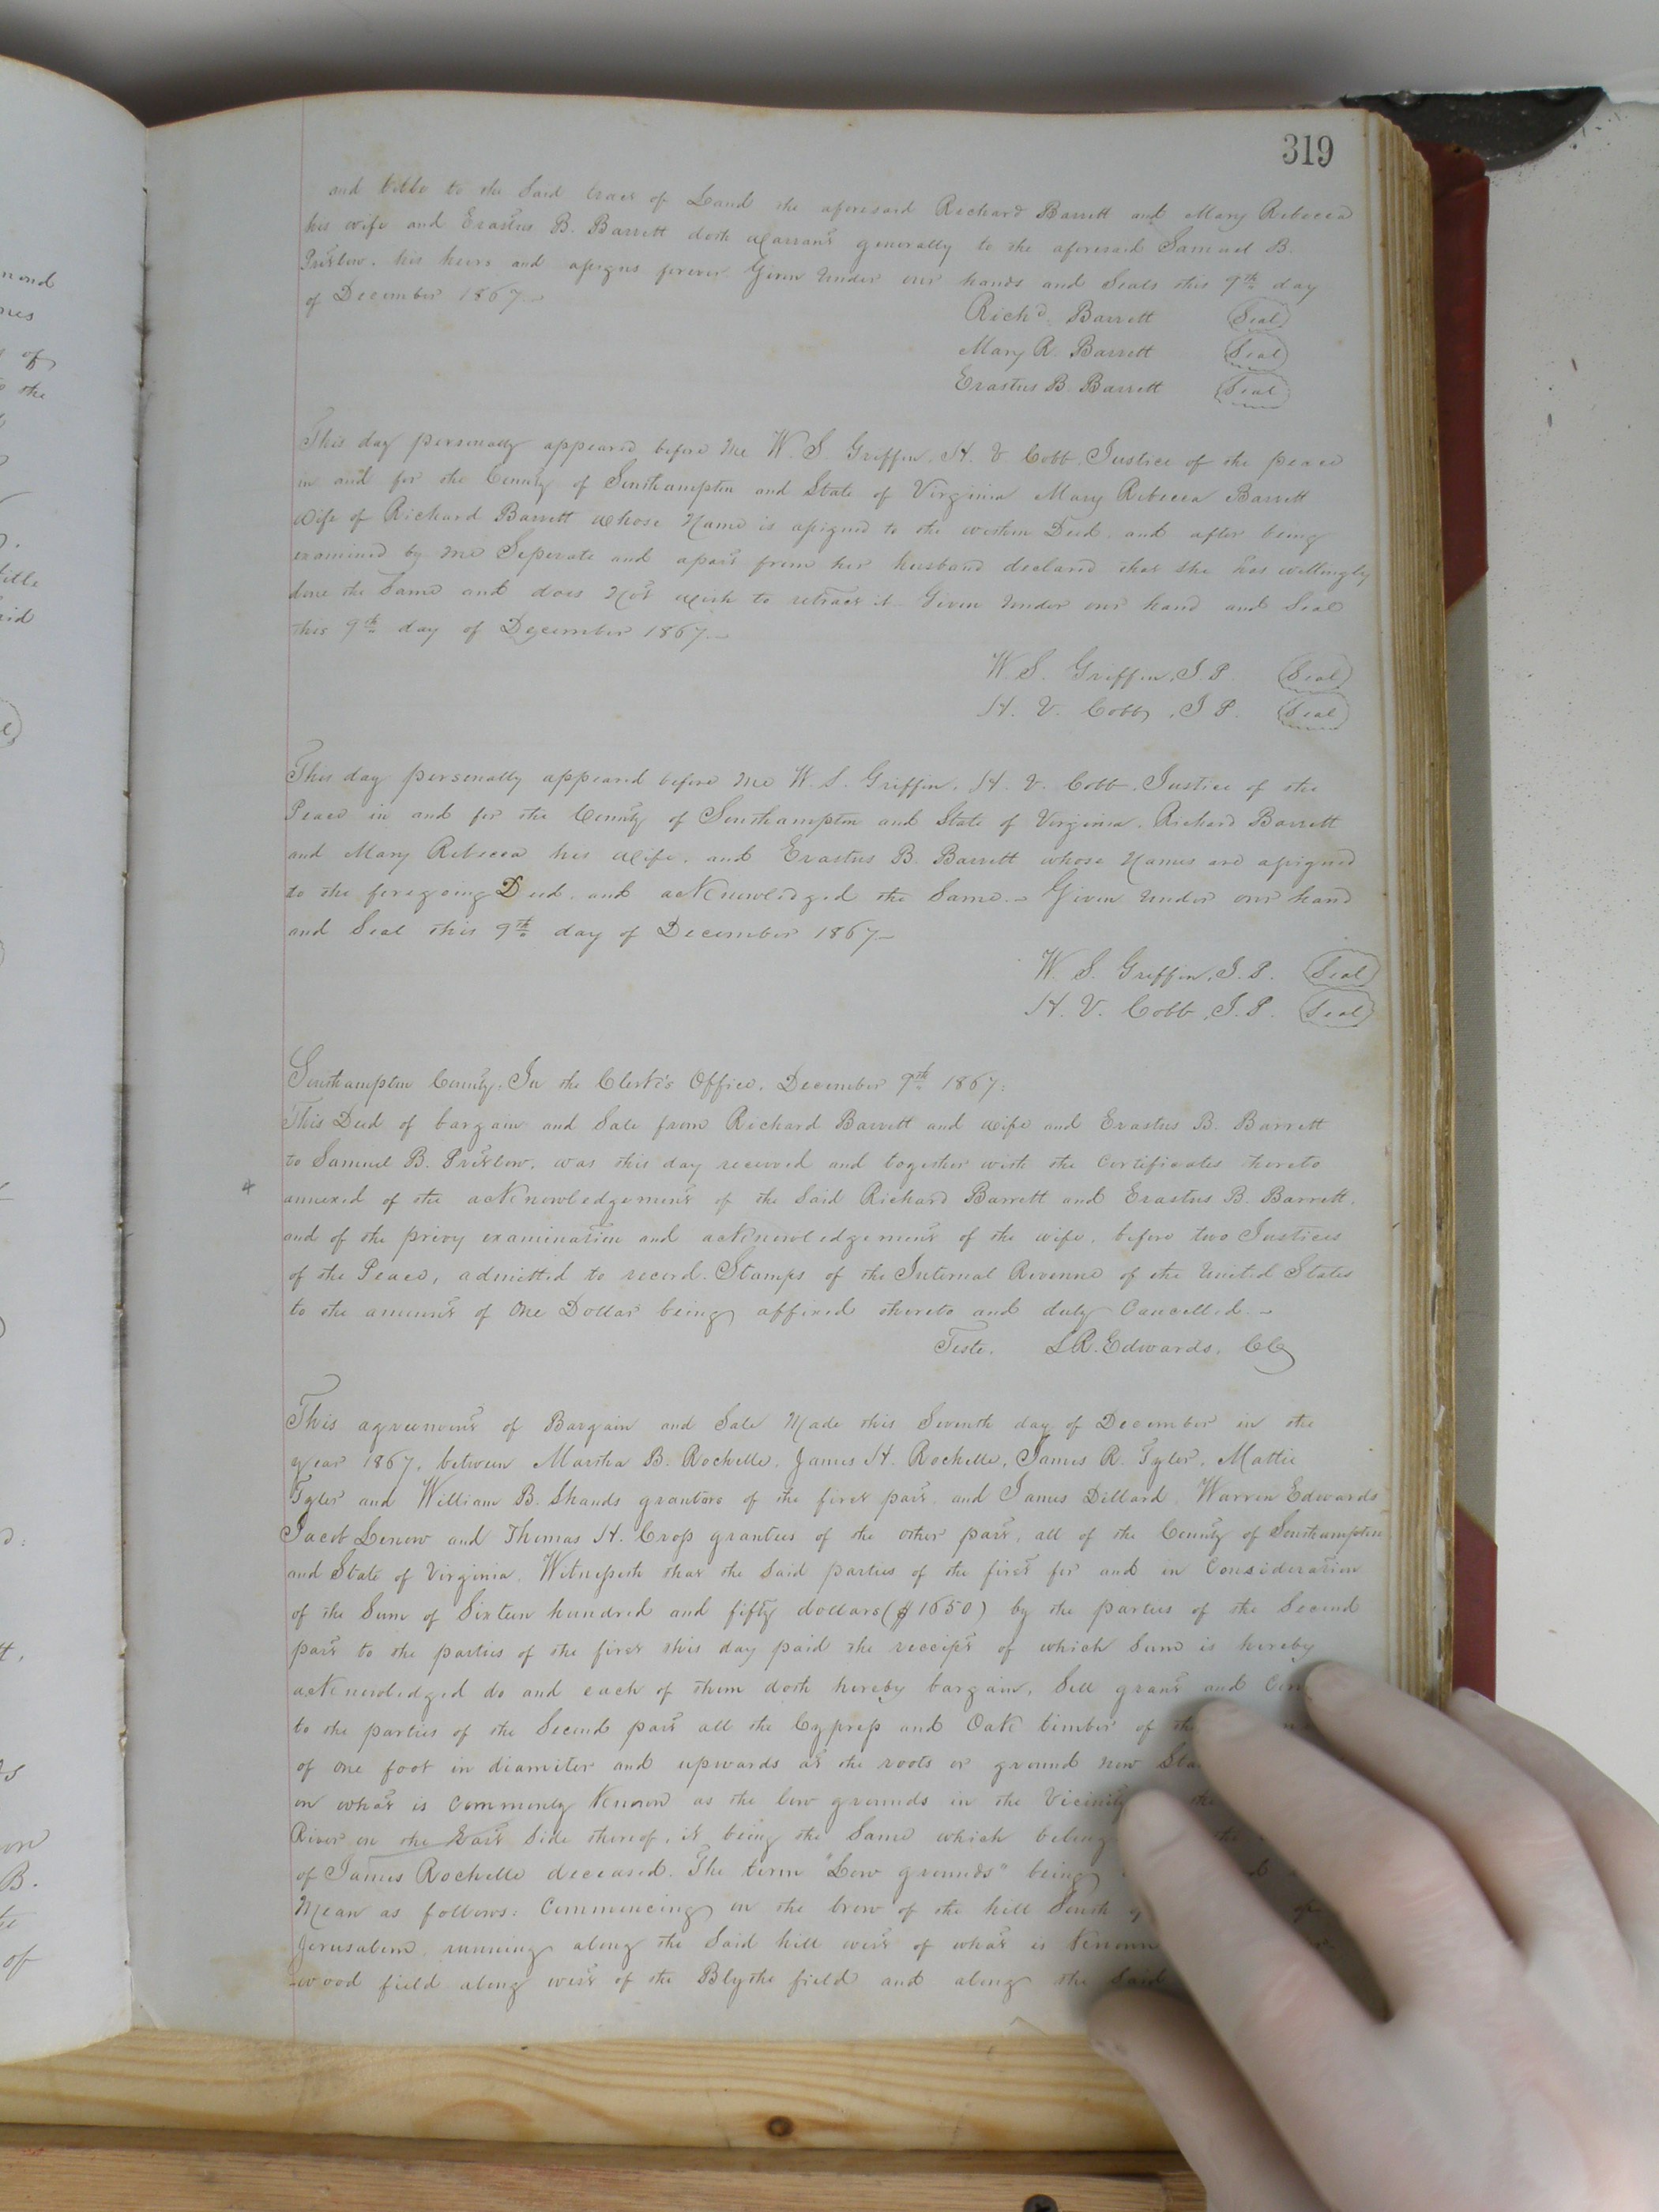 319
and title to the Said tract of Land the aforesaid Richard Barrett and Mary Rebecca
his wife and Erastus B. Barrett doth Warrant generally to the aforesaid Samuel B.
his heirs and assigns forever Given Under our hands and Seals this 9th day
of December 1867.
Richd. Barrett (Seal)
Mary R. Barrett (Seal)
Erastus B. Barrett (Seal)
This day personally appeared before Me W. S. Griffin, H. V. Cobb, Justice of the peace
in and for the County of Southampton and State of Virginia Mary Rebecca Barrett
Wife of Richard Barrett Whose Name is assigned to the within Deed, and after being
examined by Me Seperate and apart from her husband declared that she has willingly
done the Same and does Not Wish to retract it. Given Under our hand and Seal
this 9th day of December 1867.
W. S. Griffin, J. P. (Seal)
H. V. Cobb, J. P. (Seal)
This day personally appeared before Me W. S. Griffin, H. V. Cobb, Justice of the
Peace in and for the County of Southampton and State of Virginia, Richard Barrett
and Mary Rebecca his Wife, and Erastus B. Barrett whose Names are assigned
to the foregoing Deed, and acknowledged the Same. Given Under our hand
and Seal this 9th day of December 1867
W. S. Griffin, J. P. (Seal)
H. V. Cobb, J. P. (Seal)
Southampton County, In the Clerk's Office, December 9th 1867:
This Deed of bargain and Sale from Richard Barrett and Wife and Erastus B. Barrett
to Samuel B. was this day received and together with the Certificates thereto
annexed of the acknowledgement of the Said Richard Barrett and Erastus B. Barrett,
and of the privy examination and acknowledgement of the wife, before two Justices
of the Peace, admitted to record. Stamps of the Internal Revenue of the United States
to the amount of One Dollar being affixed thereto and duly Cancelled.
Teste. L R. Edwards, CC
This agreement of Bargain and Sale Made this Seventh day of December in the
year 1867, between Martha B. Rochelle, James H. Rochelle, James R. Tyler, Mattie
Tyler and William B. Shands grantors of the first part and James Dillard, Warren Edwards
Jacob Lenow and Thomas H. Cross grantees of the other part, all of the County of Southampton
and State of Virginia, Witnesseth that the Said parties of the first for and in Consideration
of the Sum of Sixteen hundred and fifty dollars ($1650) by the parties of the Second
part to the parties of the first this day paid the receipt of which Sum is hereby
acknowledged do and each of them doth hereby bargain, Sell grant and
to the parties of the Second part all the Cypress and Oak timber of
of one foot in diameter and upwards at the roots or ground now
on what is Commonly Known as the low grounds in the Vicinity
River on the East Side thereof, it being the Same which
of James Rochelle deceased. The term "Low grounds" being
Mean as follows: Commencing on the brow of the hill South
Jerusalem, running along the Said hill west of what is Known
-wood field along west of the Blythe field and along the Said